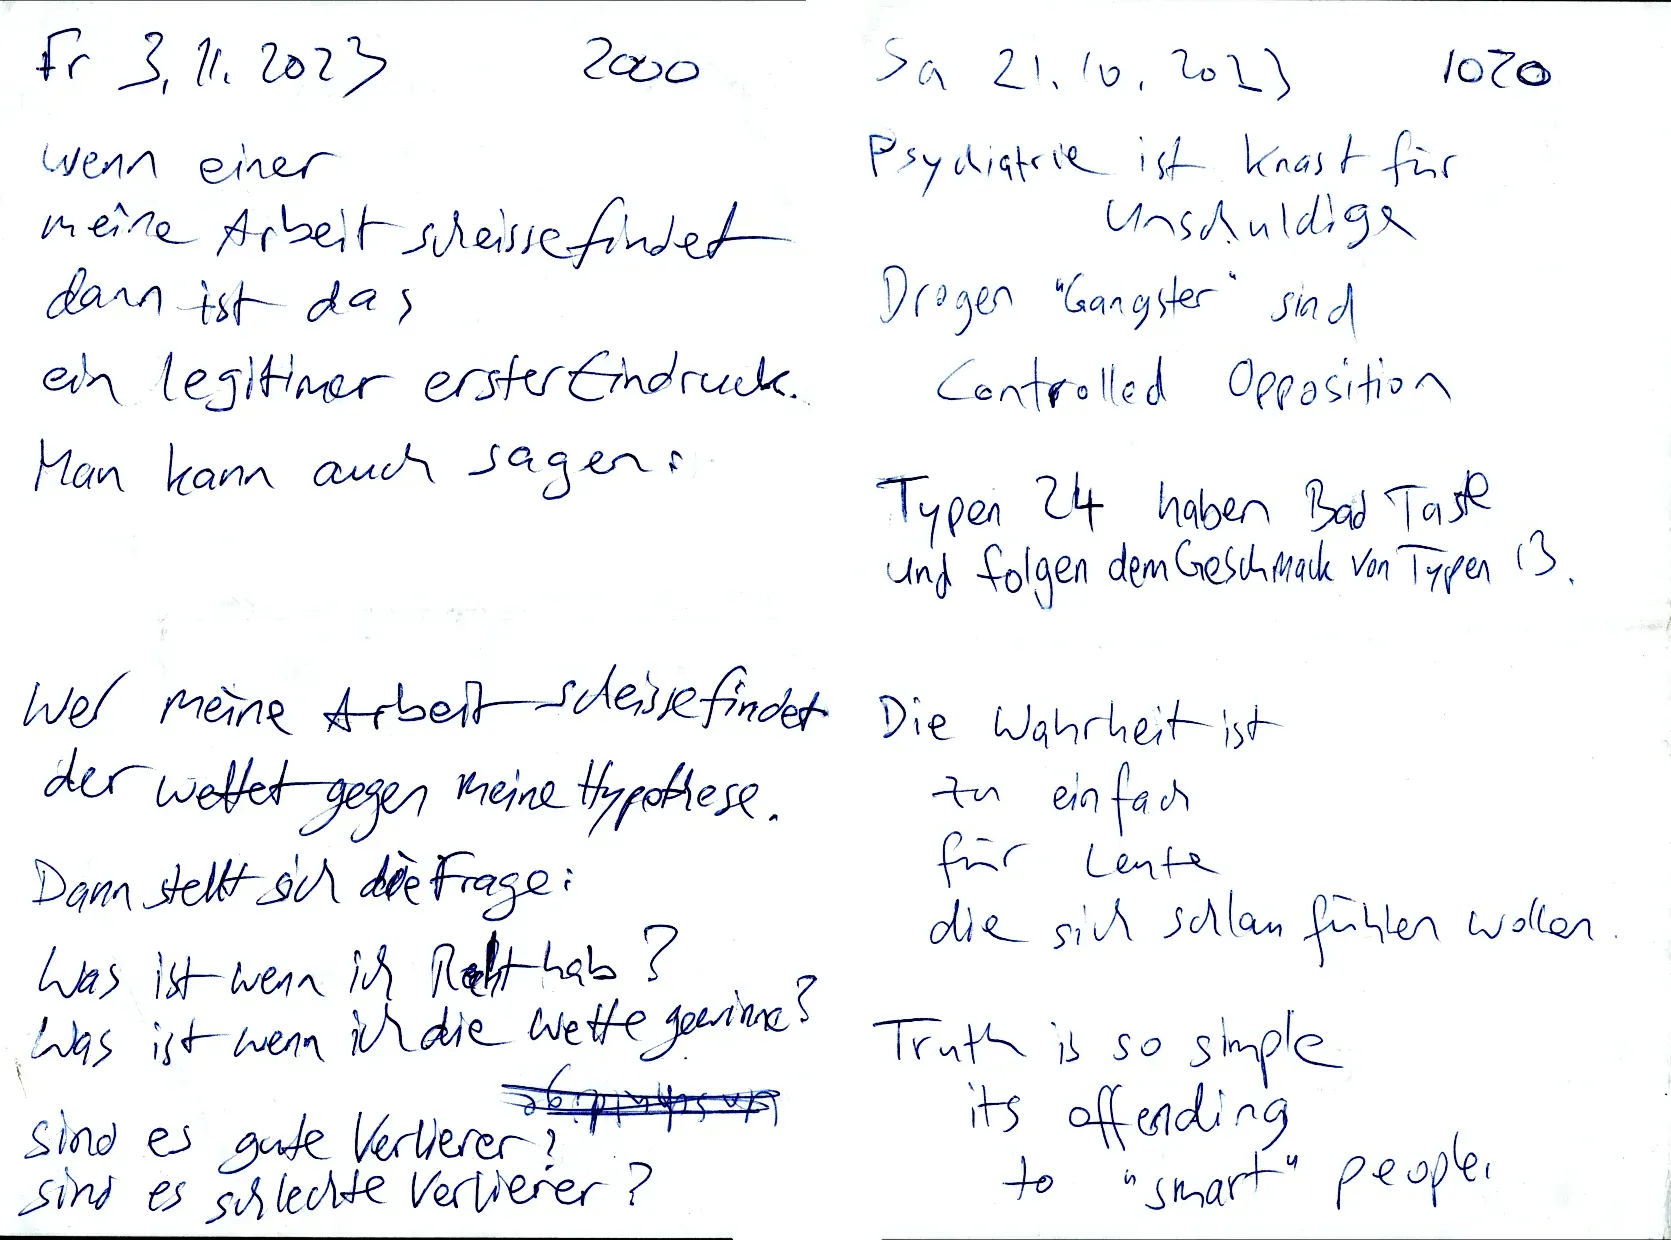 Fr 3.11.2023 2000
wenn einer
meine Arbeit scheisse findet
dann ist das
ein legitimer erster Eindruck.
Man kann auch sagen:
Wer meine Arbeit scheisse findet
der wettet gegen meine Hypothese.
Dann stellt sich die Frage:
Was ist wenn ich Recht hab?
Was ist wenn ich die Wette gewinne?
sind es gute Verlierer?
sind es schlechte Verlierer?
Sa 21.10.2023 1020
Psychiatrie ist Knast für
Unschuldige
Drogen "Gangster" sind
Controlled Opposition
Typen 24 haben Bad Taste
und folgen dem Geschmack von Typen 13.
Die Wahrheit ist
zu einfach
für Leute
die sich schlau fühlen wollen.
Truth is so simple
its offending
to "smart" people.